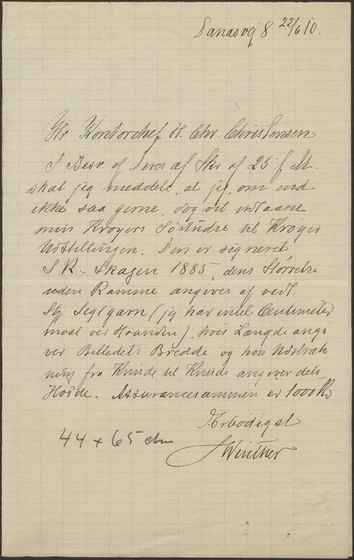 Danasvej 8 22/6 10.
Hr. Kontorchef H. Chr. Christensen
I Besv. af Deres af Skr. af 25 f. Mt.
skal jeg meddele, at jeg, om end
ikke saa gerne, dog vil udlaane
min Krøyers til Krøyer
Udstillingen. Den er signeret
S K - Skagen 1885, dens Størrelse
uden Ramme angives af vedl.
Stk Seglgarn (jeg har intet Centimeter
maal ved Haanden), hvis Længde angi
ver Billedets Bredde og hvis Udstræk
ning fra Knude til Knude angiver dets
Højde. Assurancesummen er 1000 Kr
Ærbødigst
Winther
44 x 65 cm